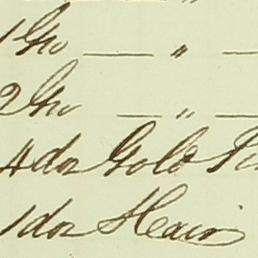 1 Gro — " —
2 Gro — " —
4 doz Gold Pi
1 doz Hair